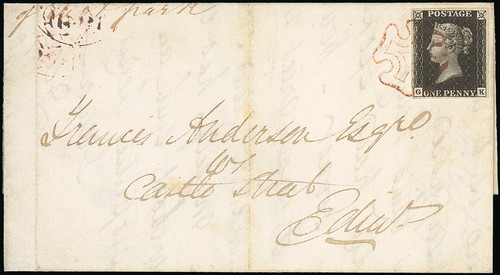 POSTAGE
G K
ONE PENNY
Francis Anderson Esqre
WS
Castle Street
Edinr